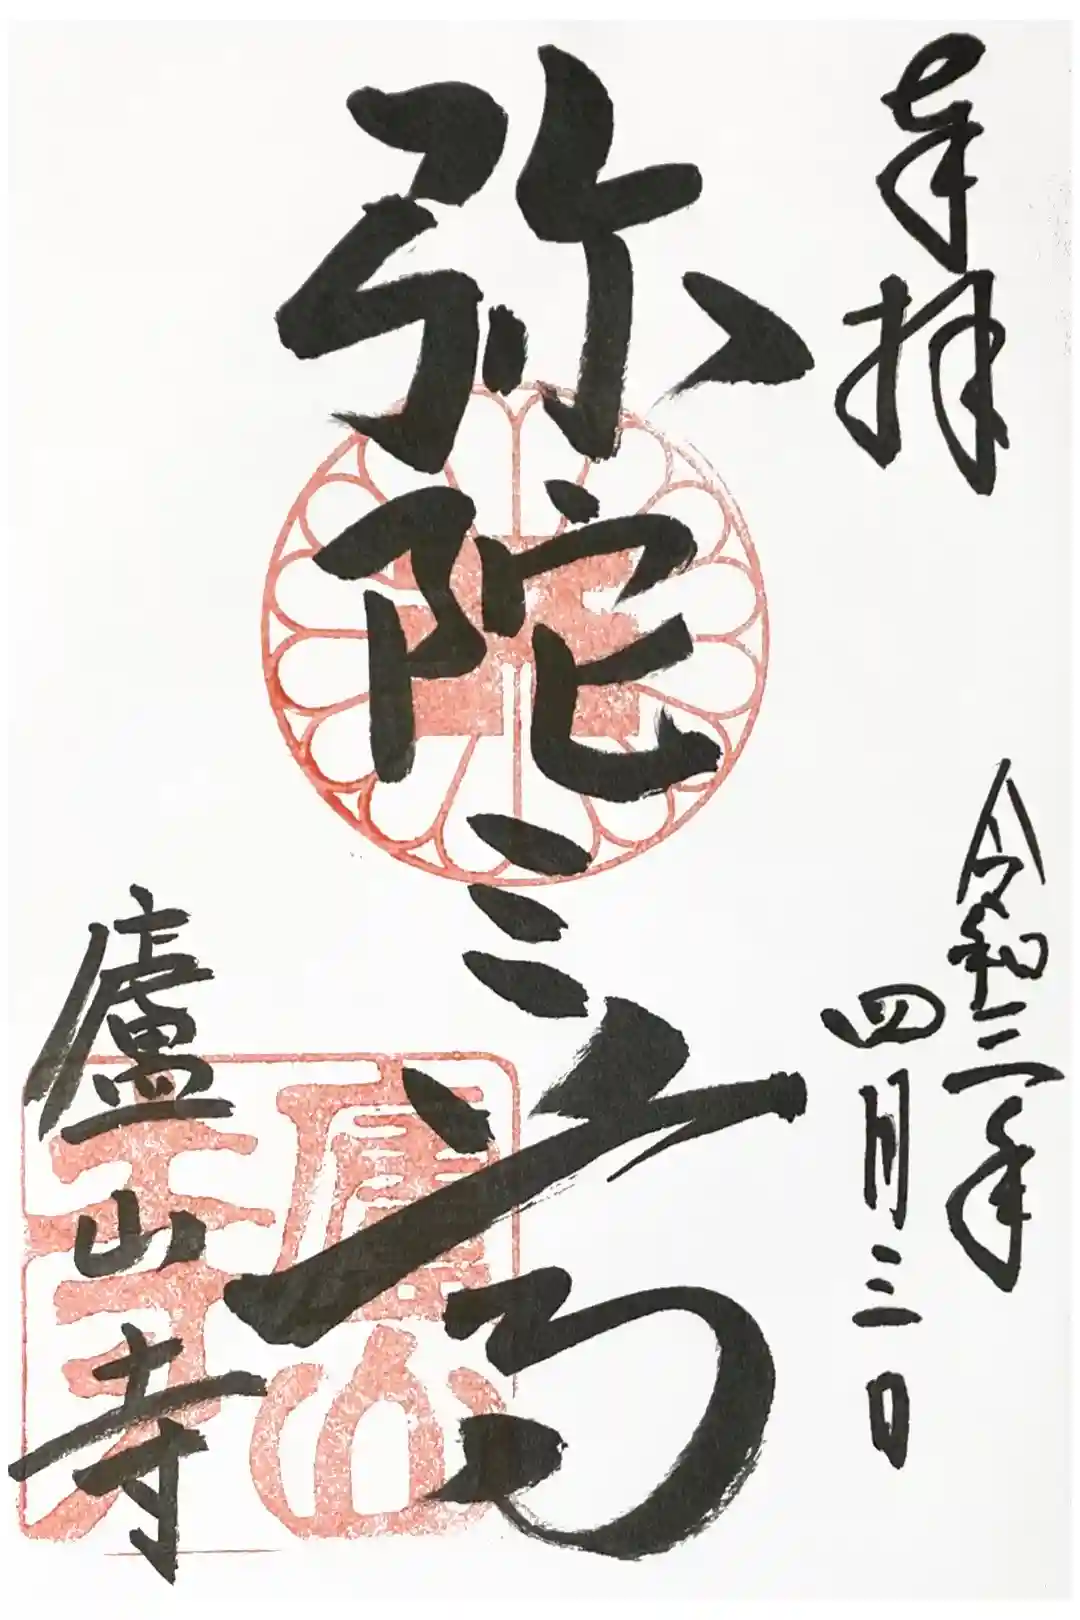 奉拝
令和三年
四月三日
弥陀三尊
廬山寺
廬山寺